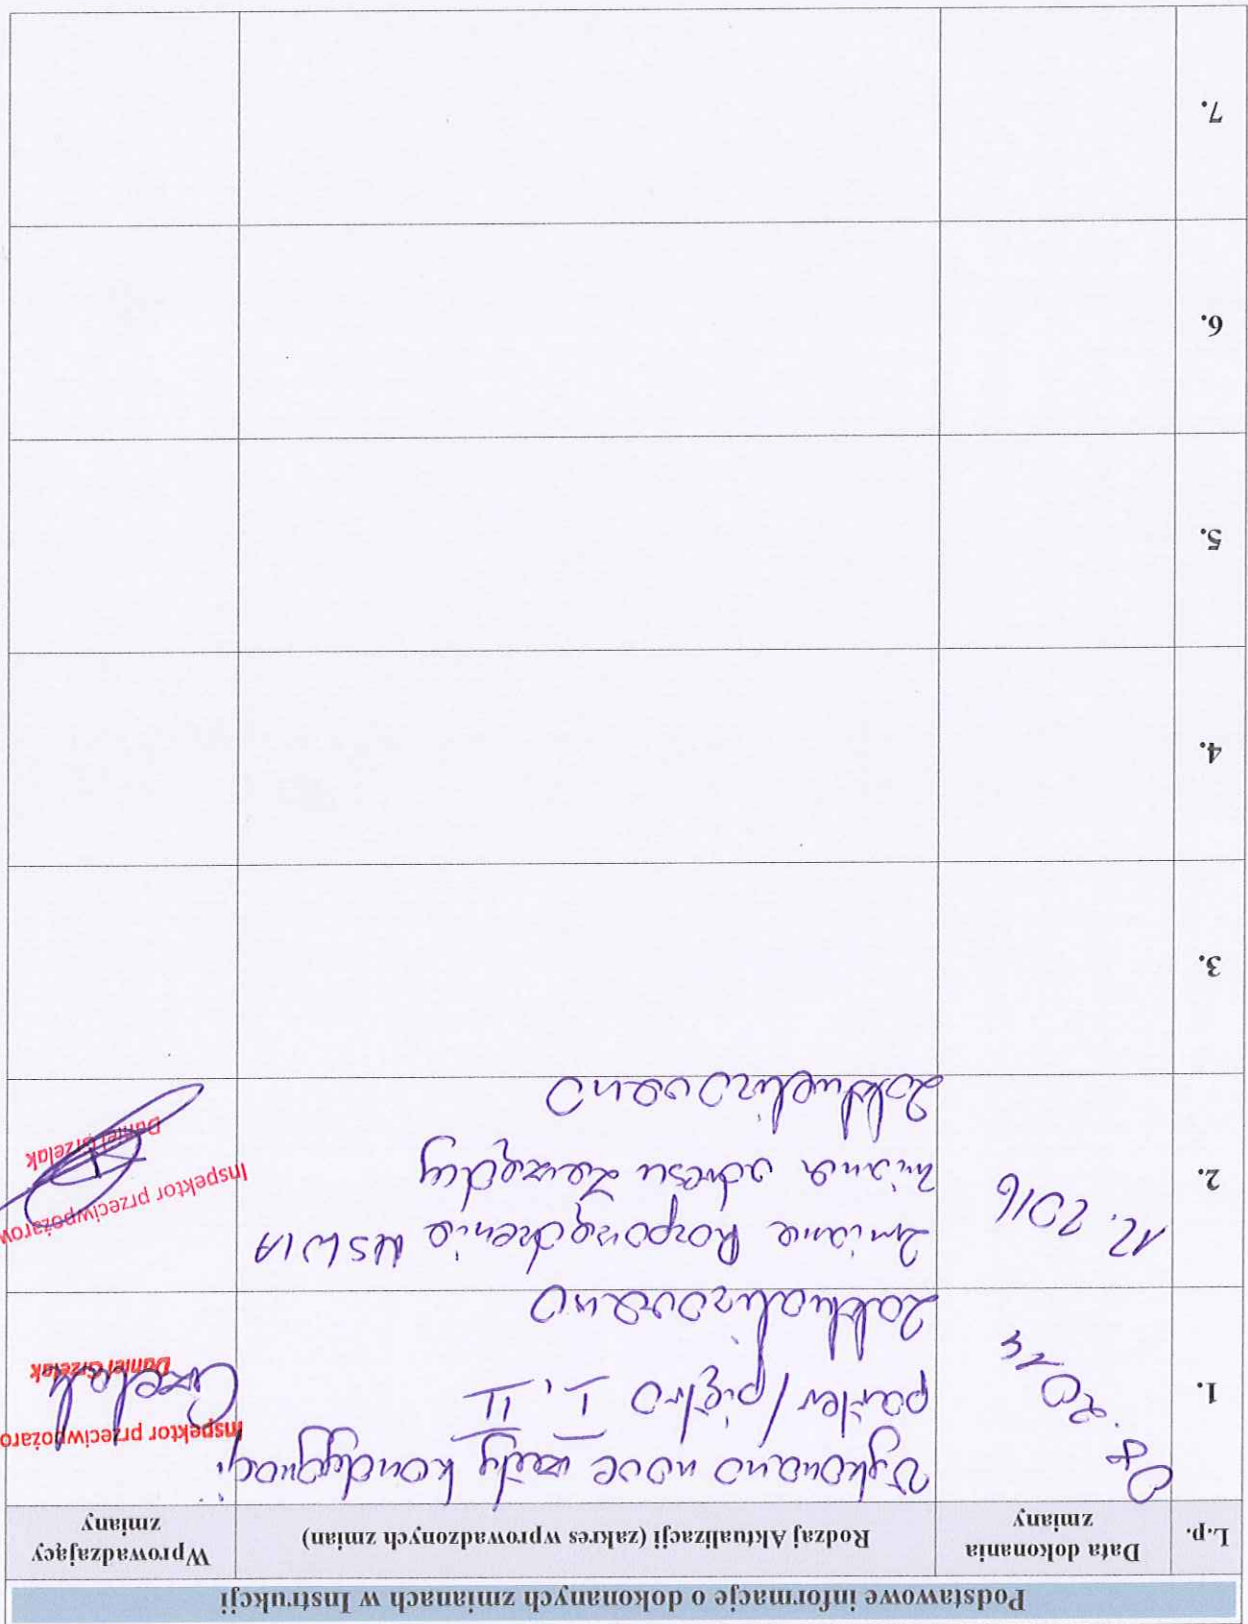 Podstawowe informacje o dokonanych zmianach w Instrukcji
L.p.
Data dokonania
zmiany
Rodzaj Aktualizacji (zakres wprowadzonych zmian)
Wprowadzający
zmiany
1.
08.2014
Wykonano nowe rzuty kondygnacji
parter/piętro I i II
Zaktualizowano
Inspektor przeciwpożaro
Daniel Grzelak
Grzelak
2.
12.2016
Zmiana Rozporządzenia MSWIA
Zmiana adresu Zarządcy
Zaktualizowano
Inspektor przeciwpożarow
Daniel Grzelak
3.
4.
5.
6.
7.